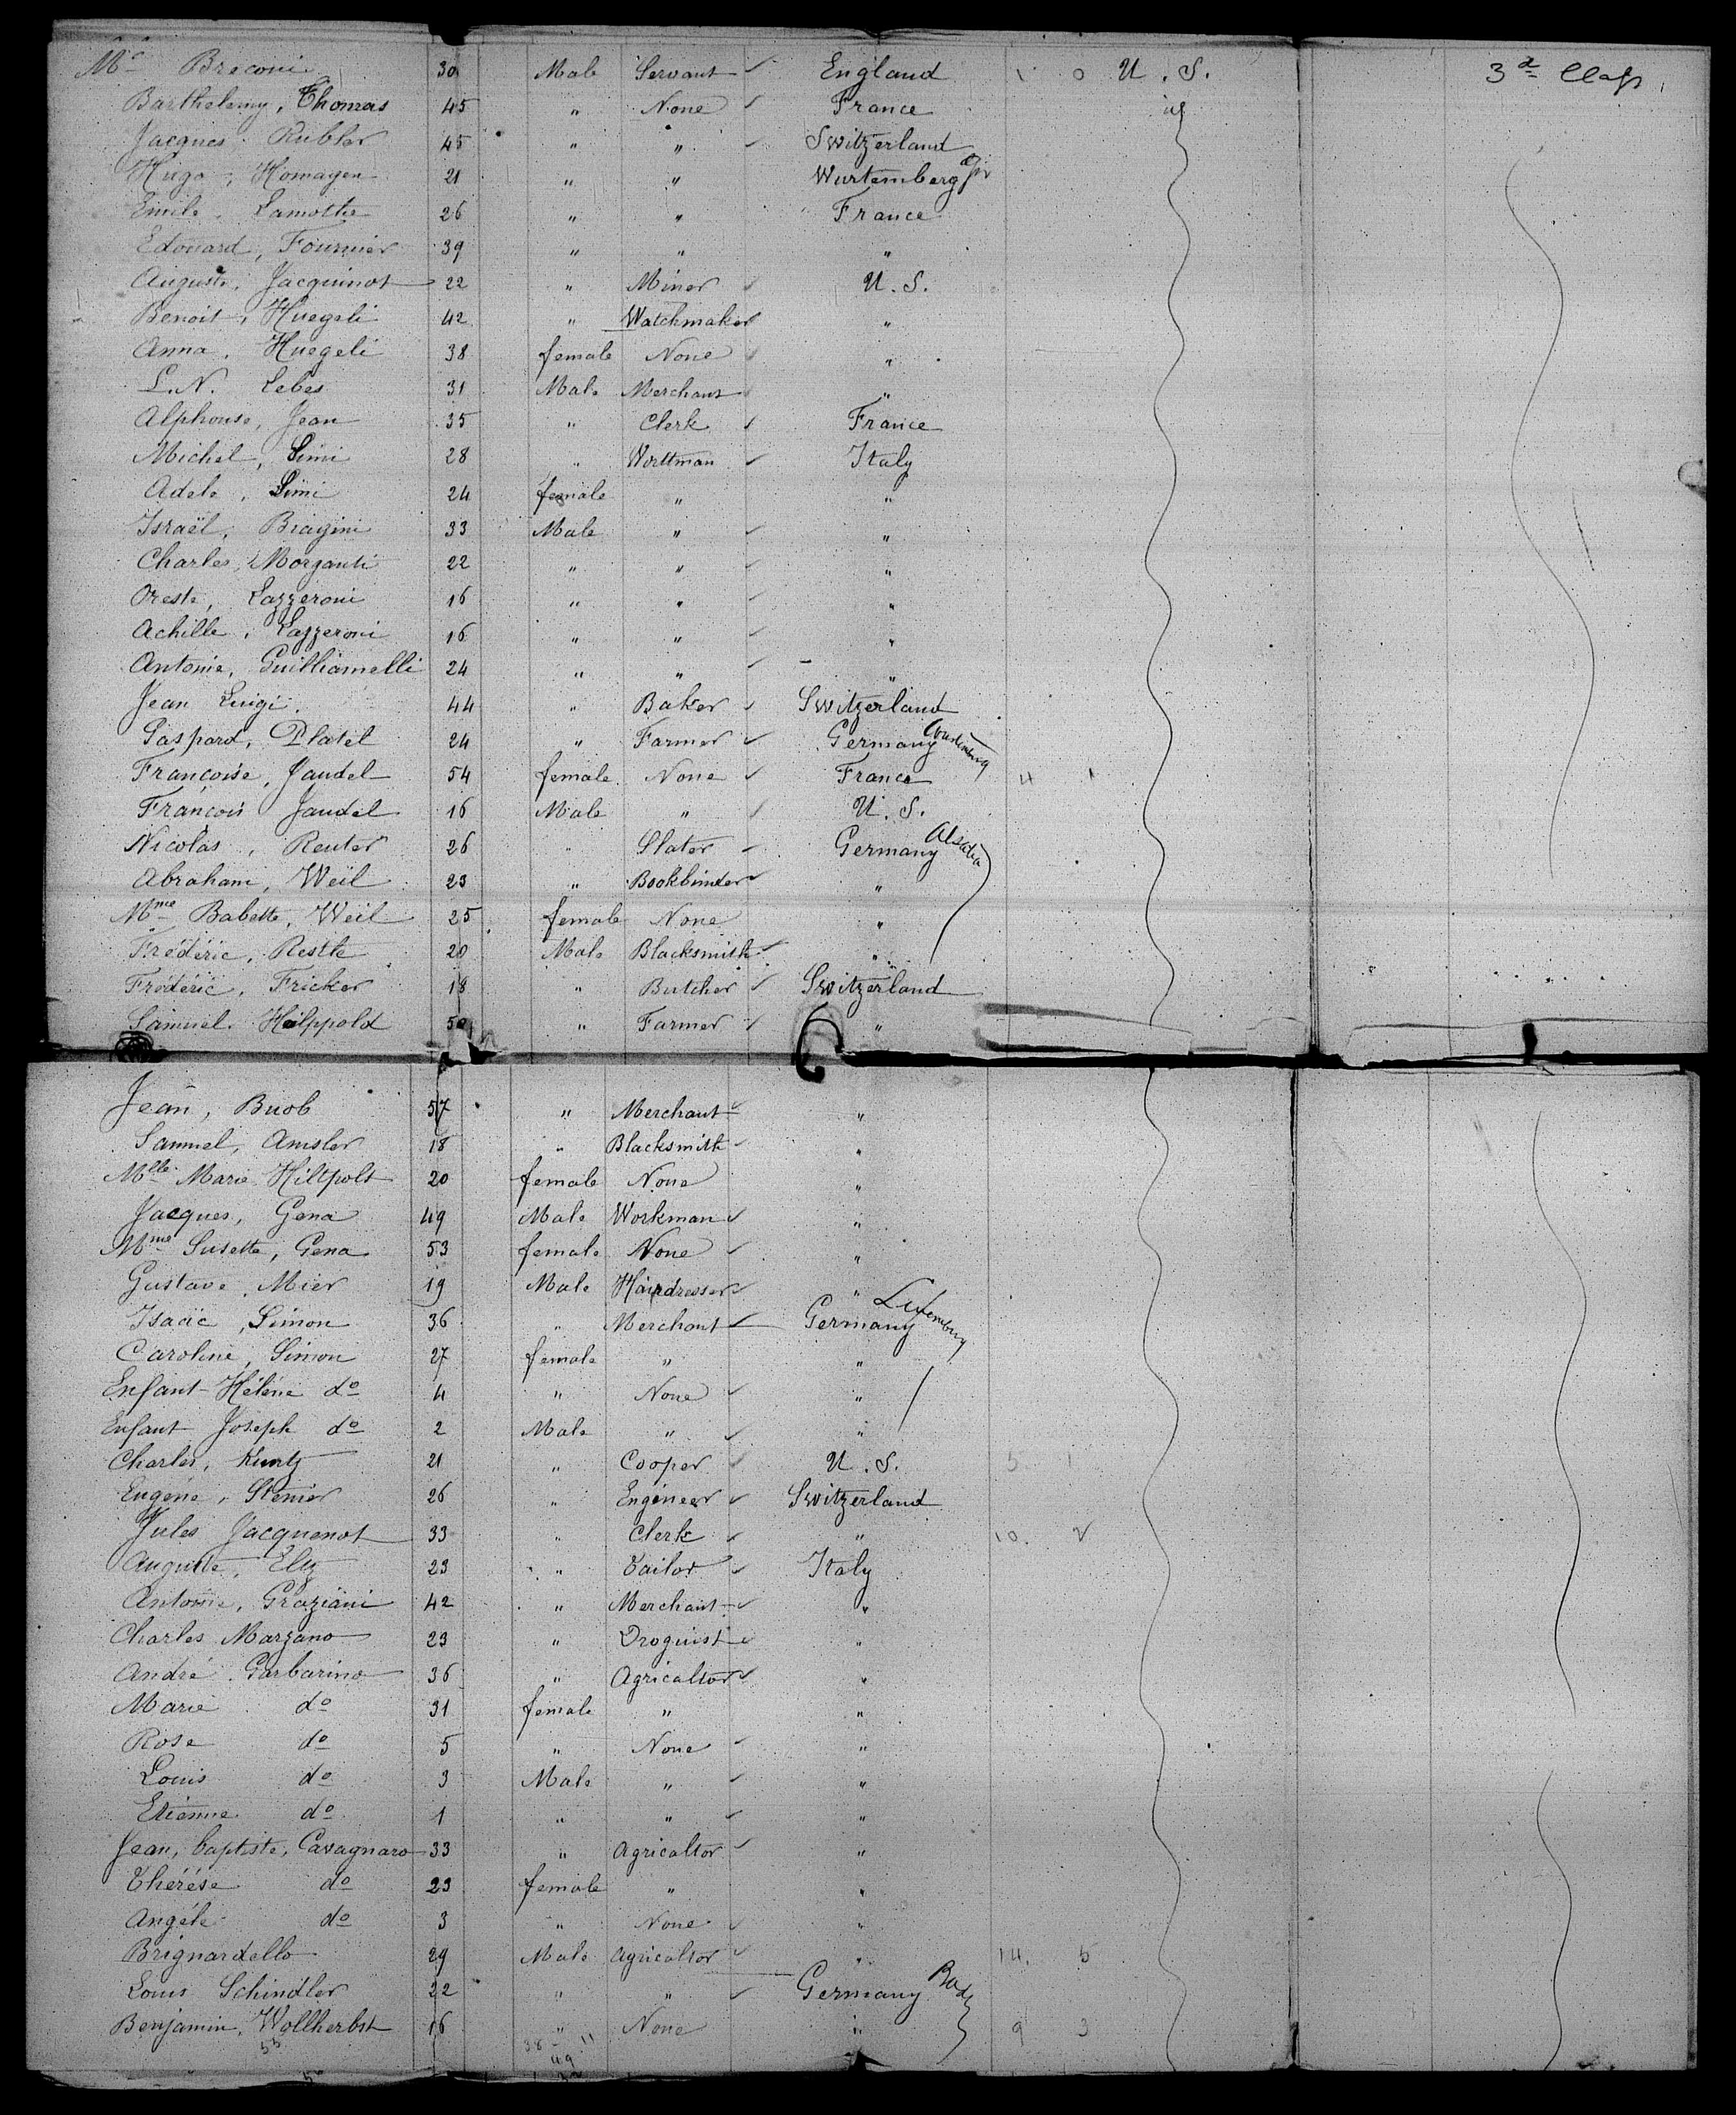 Mr Breconi 30 Male Servant ✓ England 1 0 U. S. 3d Class
Barthelemy, Thomas 45 " None ✓ France
Jacques Rubler 45 " " ✓ Switzerland
Hugo, Homayer 21 " " Wurtemberg
Emile, Lamothe 26 " " France
Edouard, Fournier 39 " " "
Auguste, Jacquinot 22 " Miner ✓ U. S.
Benoit, Huegeli 42 " Watchmaker "
Anna, Huegeli 38 female None ✓ "
L. N. Lebes 31 Male Merchant "
Alphonse, Jean 35 " Clerk ✓ France
Michel, Simi 28 " Worttman ✓ Italy
Adele, Simi 24 female " "
Israël, Biagini 33 Male " ✓ "
Charles, Morganti 22 " " ✓ "
Oreste, Lazzeroni 16 " " ✓ "
Achille, Lazzeroni 16 " " ✓ "
Antonie, Guilliamelli 24 " " ✓ "
Jean Luigi 44 " Baker ✓ Switzerland
Gaspard, Platel 24 " Farmer ✓ Germany
Françoise, Jaudel 54 female None ✓ France 4 1
François Jaudel 16 Male " ✓ U. S.
Nicolas, Reuter 26 " Slater ✓ Germany Alsatia
Abraham, Weil 23 " Bookbinder ✓ "
Mme Babette, Weil 25 female None "
Frédéric, Restle 20 Male Blacksmith ✓ "
Frédéric, Fricker 18 " Butcher ✓ Switzerland
Samuel Hilppold 50 " Farmer ✓ "
Jean, Buob 57 " Merchant ✓ "
Samuel, Amsler 18 " Blacksmith ✓ "
Mlle Marie Hiltpolt 20 female None "
Jacques, Gena 49 Male Workman ✓ "
Mme Susette, Gena 53 female None ✓ "
Gustave, Mier 19 Male Hairdresser ✓ "
Isaäc, Simon 36 " Merchant ✓ Germany Luxemburg
Caroline, Simon 27 female " "
Enfant Hélène do 4 " None ✓ "
Enfant Joseph do 2 Male " ✓ "
Charles, Kuntz 21 " Cooper ✓ U. S. 5 1
Eugène, Stenier 26 " Engineer ✓ Switzerland
Jules Jacquenot 33 " Clerk ✓ " 10. 2
Auguste, Elz 23 " Tailor ✓ Italy
Antonie, Graziani 42 " Merchant ✓ "
Charles Marzano 23 " Droguist ✓ "
André Garbarino 36 " Agricaltor ✓ "
Marie do 31 female " "
Rose do 5 " None ✓ "
Louis do 3 Male " ✓ "
Etienne do 1 " " ✓ "
Jean, baptiste, Cavagnaro 33 " Agricaltor ✓ "
Thérèse do 23 female " "
Angéle do 3 " None ✓ "
Brignardello 29 Male Agricaltor ✓ " 14. 5
Louis Schindler 22 " " ✓ Germany Bade
Benjamin, Wollherbst 16 " None " 9 3
55 38 11
49